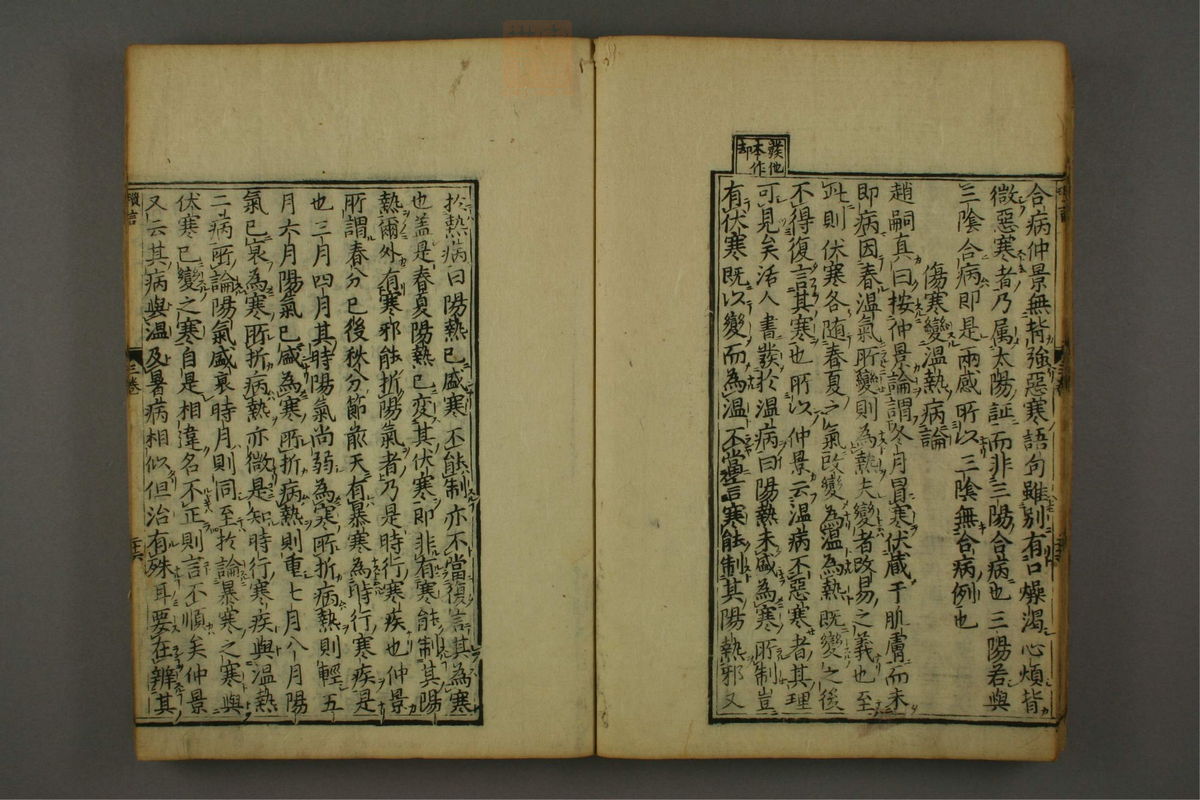 發他
本作
却
合病仲景無背強惡寒語句雖别有口燥渴心煩背
微惡寒者乃属太陽証而非三陽合病也三陽若與
三陰合病即是兩感所以三陰無合病例也
傷寒變温熱病論
趙嗣真曰按仲景論謂冬月冒寒伏藏于肌膚而未
即病因春温氣所變則為熱夫變者改易之義也至
此則伏寒各随春夏之氣改變為温為熱既變之後
不得復言其寒也所以仲景云温病不惡寒者其理
可見矣活人書發於温病曰陽熱未盛為寒所制豈
有伏寒既以變而為温不當言寒能制其陽熱邪又
於熱病曰陽熱已盛寒不能制亦不當復言其為寒
也盖是春夏陽熱已变其伏寒即非有寒能制其陽
熱爾外有寒邪能折陽氣者乃是時行寒疾也仲景
所謂春分已後秋分節前天有暴寒為時行寒疾是
也三月四月其時陽氣尚弱為寒所折病熱則輕五
月六月陽氣已盛為寒所折病熱則重七月八月陽
氣已衰為寒所折病熱亦微是知時行寒疾與温熱
二病所論陽氣盛衰時月則同至於論暴寒之寒與
伏寒已變之寒自是相違名不正則言不順矣仲景
又云其病與温及暑病相似但治有殊耳要在辨其
三卷